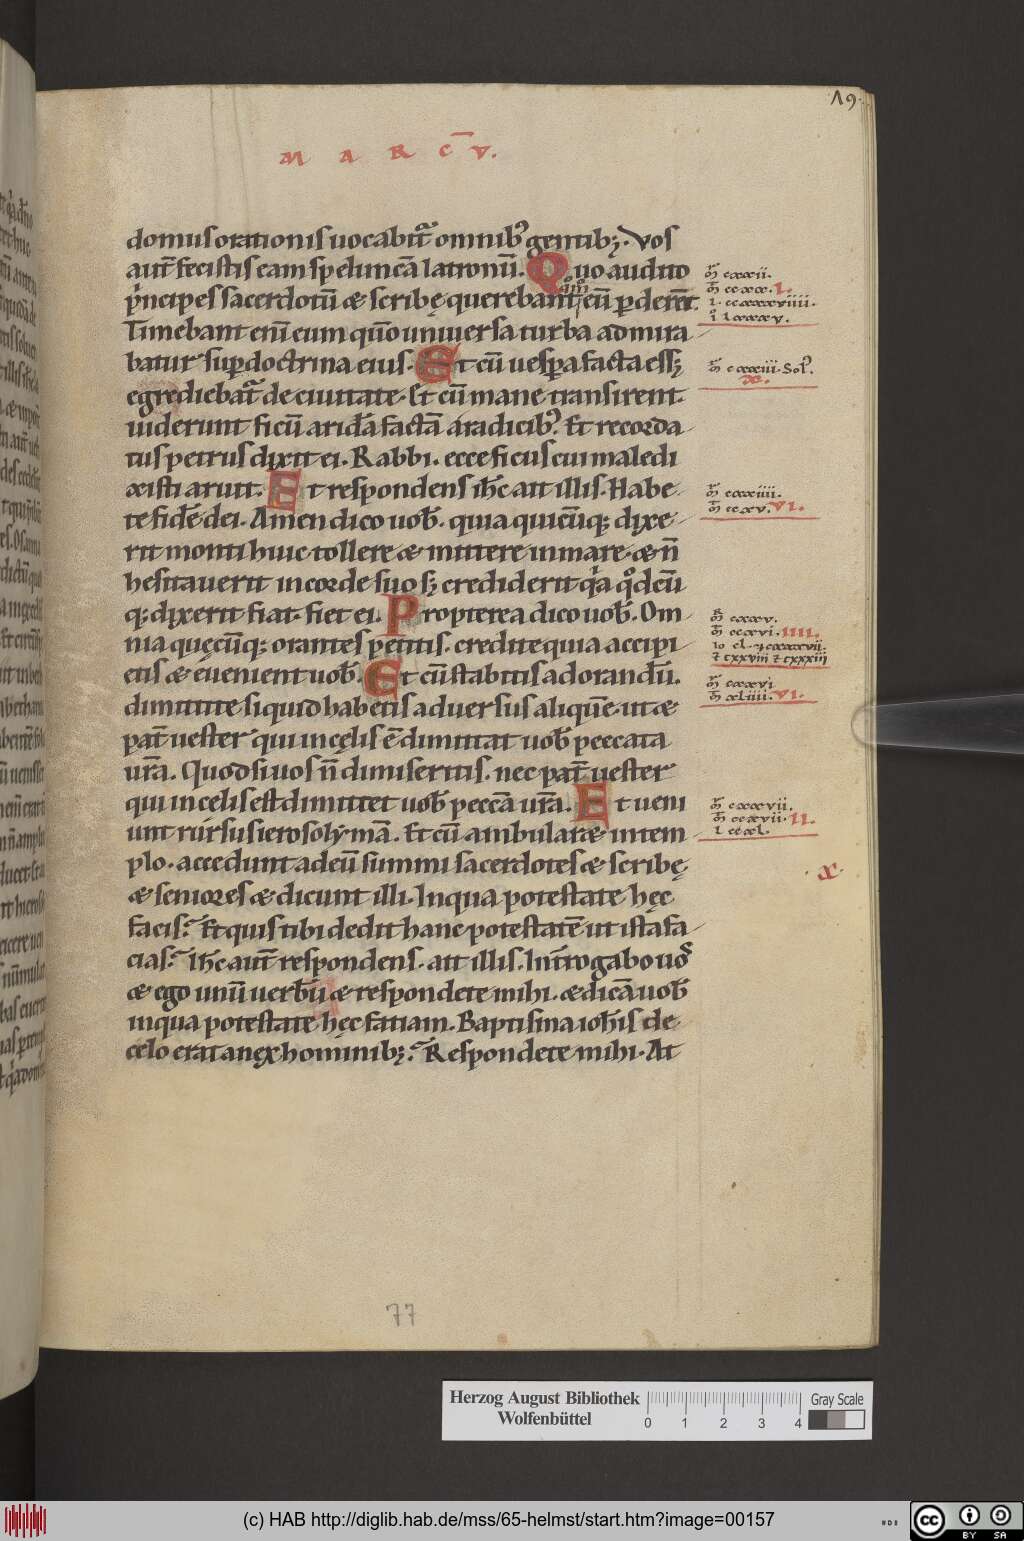 19.
M A R C̄ V.
domus orationis uocabit᷑ omnib᷒ gentib;. Vos
aut̄ fecistis eam speluncā latronū. Quo audito
p̄ncipes sacerdotū & scribę querebant qͦmͦ eū ꝑderēt.
Timebant enī eum qūo uniuersa turba admira
batur sup doctrina eius. Et cū uespa facta ess;
egrediebat᷑ de ciuitate. Et cū mane transirent.
uiderunt ficū aridā factā a radicib᷒. Et recorda
tus petrus dixit ei. Rabbi. ecce ficus cui maledi
xisti aruit. Et respondens ih̄c ait illis. Habe
te fidē dei. Amen dico uob̄. quia quicūq; dixe
rit monti huic tollere & mittere in mare. & n̄
hesitauerit in corde suo s; crediderit q̄a qͦdcū
q; dixerit fiat. fiet ei. Propterea dico uob̄. Om
nia quęcūq; orantes petitis. credite quia accipi
etis & euenient uob̄. Et cū stabitis ad orandū.
dimittite siquid habetis aduersus aliquē. ut &
pat̄ uester qui in cęlis ē dimittat uob̄ peccata
ur̄a. Quod si uos n̄ dimiseritis. nec pat̄ uester
qui in celis est dimittet uob̄ peccā ur̄a. Et ueni
unt rursus ierosolymā. Et cū ambular& in tem
plo. accedunt ad eū summi sacerdotes & scribę
& seniores & dicunt illi. In qua potestate hęc
facis? Et quis tibi dedit hanc potestatē ut ista fa
cias? Ih̄c aut̄ respondens. ait illis. Int̄rogabo uos
& ego unū uerbū & respondete mihi. & dicā uob̄
in qua potestate hęc fatiam. Baptisma ioh̄is de
celo erat an ex hominib;? Respondete mihi. At
77
Herzog August Bibliothek
Wolfenbüttel
0 1 2 3 4
Gray Scale
(c) HAB http://diglib.hab.de/mss/65-helmst/start.htm?image=00157
cc BY SA